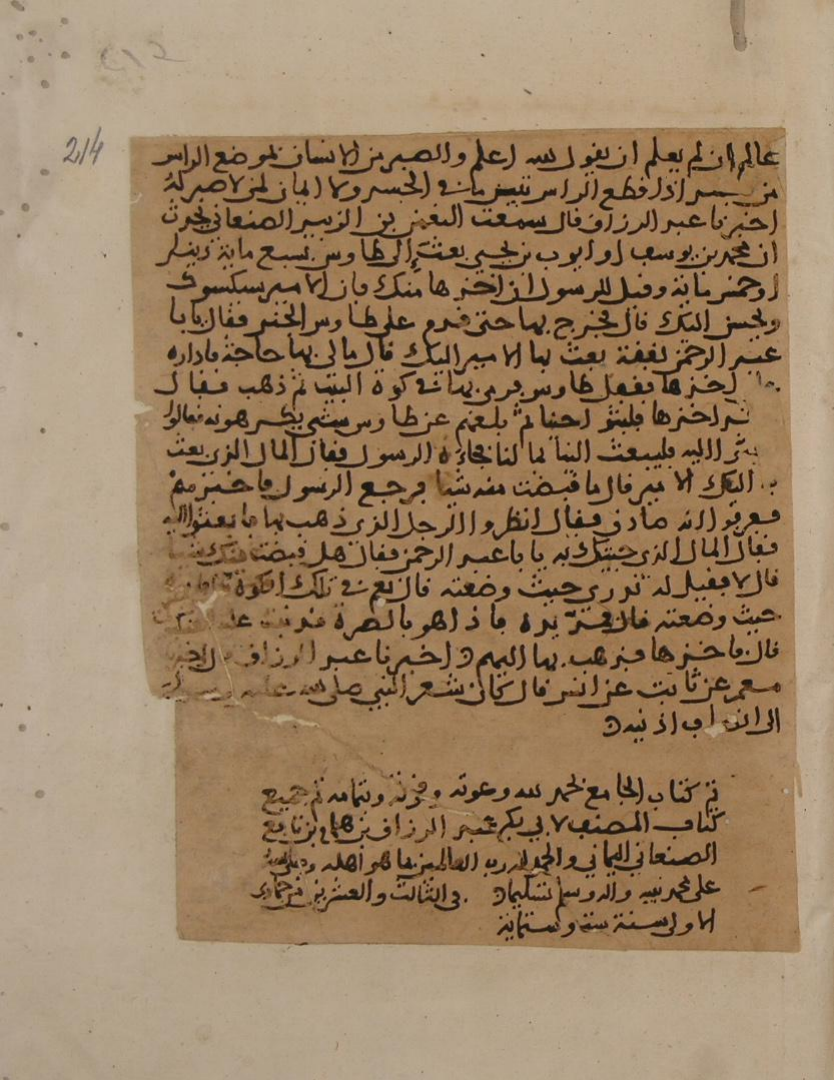 214
عالم ان لم يعلم ان يقول الله اعلم والصبر من الانسان بموضع الراس
من جسد اذا قطع الراس تيبس ما في الجسد ولا ايمان لمن لا صبر له
اخبرنا عبد الرزاق قال سمعت النعمن بن الزبير الصنعاني يحدث
ان محمد بن يوسف او ايوب بن يحيى بعث الى طاوس بسبع ماية دينار
او خمس ماية وقيل للرسول ان اخذها منك فان الامير سيكسوك
ويحسن اليك قال فخرج بها حتى قدم على طاوس الجند فقال يا با
عبد الرحمن نفقة بعث بها الامير اليك قال مالي بها حاجة فاداره
اخذها فغفل طاوس فرمى بها في كوة البيت ثم ذهب فقال
اخذها فلبثوا حينا ثم بلغهم عن طاوس شي يكرهونه فقالوا
اليه فليبعث الينا بمالنا فجاءه الرسول فقال المال الذي بعث
اليك الامير قال ما قبضت منه شيا فرجع الرسول فاخبرهم
فعرفوا انه صادق فقال انظروا الرجل الذي ذهب بها فابعثوا اليه
فقال المال الذي جيتك به يا با عبد الرحمن فقال هل قبضت منك شيا
قال لا فقيل له تدري حيث وضعته قال نعم في تلك الكوة
حيث وضعته قال فمد يده فاذا هو بالصرة قد بنت عليها
قال فاخذها فذهب بها اليهم اخبرنا عبد الرزاق قال اخبرنا
معمر عن ثابت عن انس قال كان شعر النبي صلى الله عليه وسلم
الى انصاف اذنيه
تم كتاب الجامع بحمد الله وعونه وقوته وبتمامه تم جميع
كتاب المصنف لابي بكر عبد الرزاق بن همام بن نافع
الصنعاني اليماني والحمد لله رب العالمين كما هو اهله وصلى الله
على محمد نبيه واله وسلم تسليما في الثالث والعشرين من جمادى
الاولى سنة ست وستماية